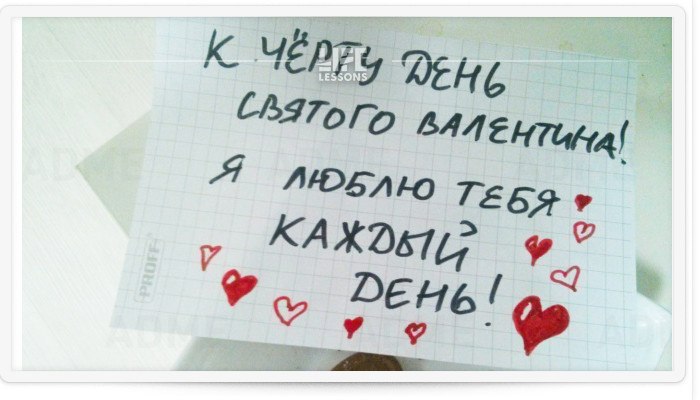 К ЧЁРТУ ДЕНЬ
LIFE
LESSONS
СВЯТОГО ВАЛЕНТИНА!
Я ЛЮБЛЮ ТЕБЯ
КАЖДЫЙ
ДЕНЬ!
PROFF